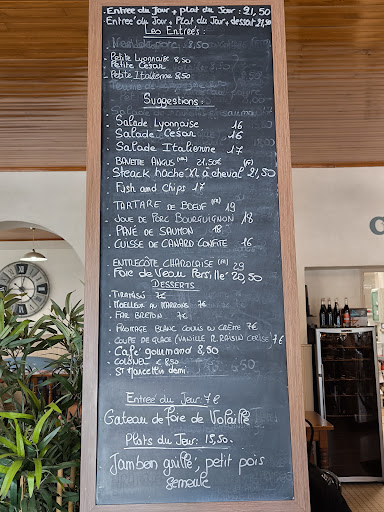 Entrée du Jour + plat du Jour : 21,50
Entrée du Jour + Plat du Jour + dessert 21,50
Les Entrées :
8,50
Petite Lyonnaise 8,50
Petite Cesar
Petite Italienne 8,50
Suggestions :
Salade Lyonnaise 16
Salade Cesar 16
Salade Italienne 17
Bavette Angus 21,50€
Steack haché XL à cheval 21,50
Fish and Chips 17
Tartare de Boeuf 19
Joue de Porc Bourguignon 18
Pavé de Saumon 18
Cuisse de Canard Confite 16
Entrecôte Charolaise 29
Foie de Veau Persillé 20,50
Desserts
Tiramisu 7€
Moelleux au Marrons 7€
Far Breton 7€
Fromage Blanc Coulis ou Crème 7€
Coupe de Glace (Vanille R. Raisin Cerise) 7€
Café gourmand 8,50
Colonel 8.50
St Marcellin demi
Entrée du Jour: 7€
Gateau de Foie de Volaille
Plats du Jour: 15,50.
Jambon grillé, petit pois
semoule